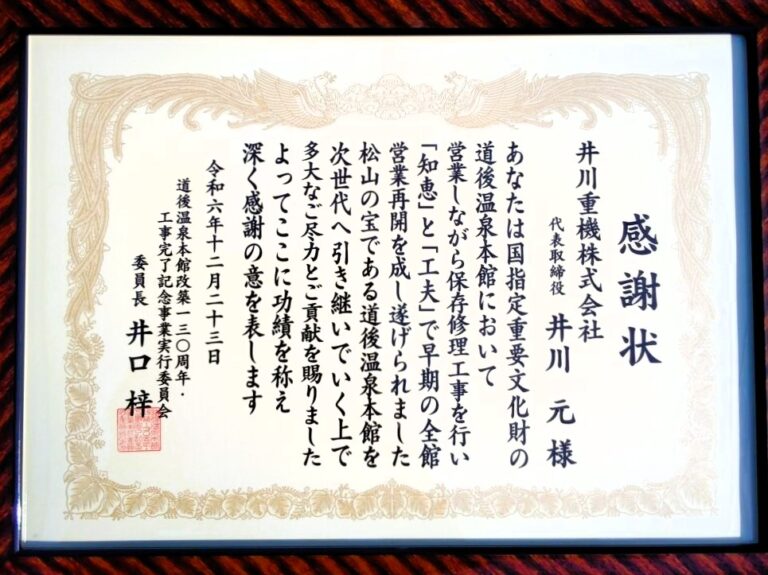 感謝状
井川重機株式会社
代表取締役 井川 元 様
あなたは国指定重要文化財の
道後温泉本館において
営業しながら保存修理工事を行い
「知恵」と「工夫」で早期の全館
営業再開を成し遂げられました
松山の宝である道後温泉本館を
次世代へ引き継いでいく上で
多大なご尽力とご貢献を賜りました
よってここに功績を称え
深く感謝の意を表します
令和六年十二月二十三日
道後温泉本館改築一三〇周年・
工事完了記念事業実行委員会
委員長 井口 梓